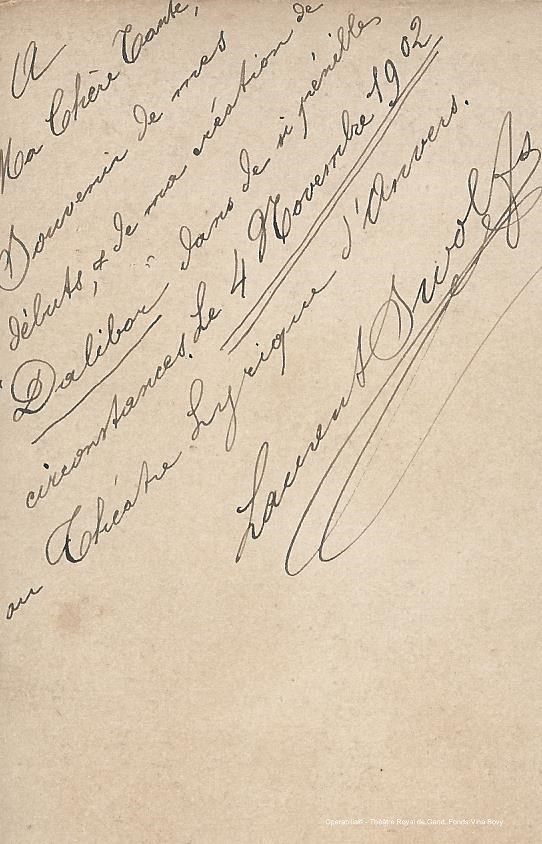 A
Ma Chère Tante,
Souvenir de mes
débuts, & de ma création de
Dalibor dans de si pénibles
circonstances. Le 4 Novembre 1902
au Théâtre Lyrique d'Anvers.
Laurent Swolfs
Théâtre Royal de Gand, Fonds